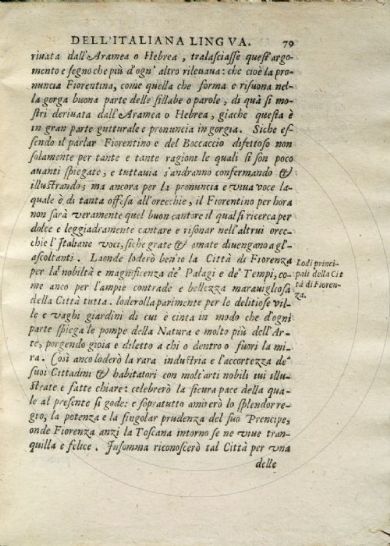 DELL'ITALIANA LINGVA. 79
riuata dall'Aramea o Hebrea, tralasciasse quest'argo-
mento e segno che più d'ogn' altro rileuaua: che cioè la pro-
nuncia Fiorentina, come quella che forma e risuona nel-
la gorga buona parte delle sillabe o parole, di quà si mo-
stri deriuata dall'Aramea o Hebrea, giache questa è
in gran parte gutturale e pronuncia in gorgia. Siche es-
sendo il parlar Fiorentino e del Boccaccio difettoso non
solamente per tante e tante ragioni le quali si son poco
auanti spiegate, e tuttauia s'andranno confermando &
illustrando; ma ancora per la pronuncia e viua voce la-
quale è di tanta offesa all'orecchie, il Fiorentino per hora
non sarà veramente quel buon cantare il qual si ricerca per
dolce e leggiadramente cantare e risonar nell'altrui orec-
chie l'Italiane voci, siche grate & ornate diuengano agl'-
ascoltanti. Laonde loderò ben'io la Città di Fiorenza
per la nobiltà e magnificenza de' Palagi e de' Tempi, co-
me anco per l'ampie contrade e bellezza marauigliosa
della Città tutta. loderolla parimente per le delitiose vil-
le e vaghi giardini di cui e cinta in modo che d'ogni
parte spiega le pompe della Natura e molto più dell'Ar-
te, porgendo gioia e diletto a chi o dentro o fuori la mi-
ra. Così anco loderò la rara industria e l'accortezza de'
suoi Cittadini & habitatori con molt'arti nobili iui illu-
strate e fatte chiare: celebrerò la sicura pace della qua-
le al presente si gode: e sopratutto amirerò lo splendor re-
gio, la potenza e la singolar prudenza del suo Prencipe,
onde Fiorenza anzi la Toscana intorno se ne viue tran-
quilla e felice. Insomma riconoscerò tal Città per vna
delle
Lodi princi-
pali della Cit
tà di Fioren-
za.